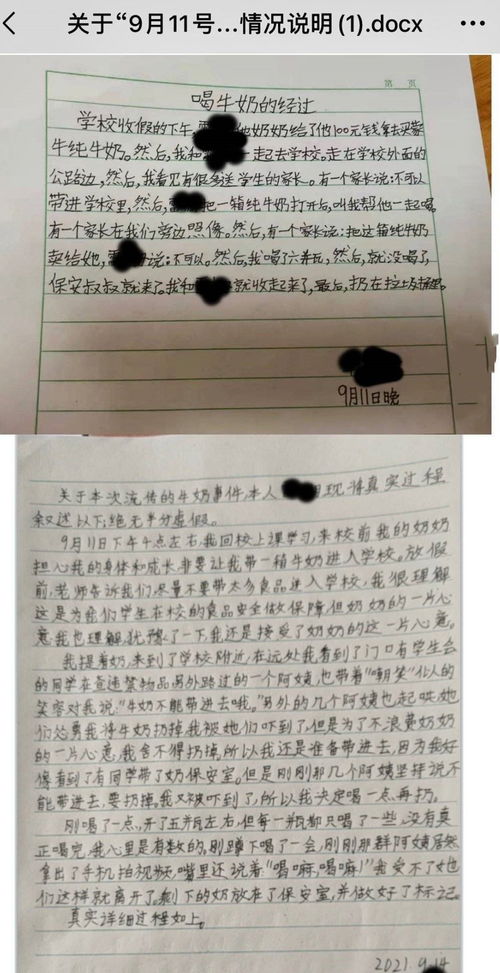 关于“9月11号...情况说明(1).docx
第 页
喝牛奶的经过
学校收假的下午,他奶奶给了他100元钱拿去买蒙
牛纯牛奶。然后,我和一起去学校。走在学校外面的
公路边,然后,我看见有很多送学生的家长。有一个家长说:不可以
带进学校里,然后,把一箱纯牛奶打开后,叫我帮他一起喝。
有一个家长在我们旁边照像。然后,有一个家长说:把这箱纯牛奶
卖给她,说:不可以。然后,我喝了六并瓦,然后,就没喝了,
保安叔叔就来了。我和就收起来了,最后,扔在垃圾桶里。
9月11日晚
关于本次流传的牛奶事件,本人现将真实过程
叙述以下,绝无半分虚假。
9月11日下午4点左右,我回校上课学习,来校前我的奶奶
担心我的身体和成长,非要让我带一箱牛奶进入学校。放假
前,老师告诉我们,尽量不要带太多食品进入学校,我很理解
这是为我们学生在校的食品安全做保障,但奶奶的一片心
意我也理解,犹豫了一下,我还是接受了奶奶的这一片心意。
我提着奶,来到了学校附近,在远处我看到了门口有学生会
的同学在查违禁物品,另外路过的一个阿姨,也带着"嘲笑"化人的
笑容对我说:"牛奶不能带进去哦。"另外的几个阿姨也起哄,她
们怂勇我将牛奶扔掉,我被她们吓到了,但是为了不浪费奶奶
的一片心意,我舍不得扔掉,所以我还是准备带进去,因为我好
像看到了有同学带了奶保安室,但是刚刚那几个阿姨坚持说不
能带进去,要扔掉,我又被吓到了,所以我决定喝一点,再扔。
刚喝了一点,开了五并瓦左右,但每一瓶都只喝了一些,没有真
正喝完,我心里是有数的,刚蹲下喝了一会,刚刚那群阿姨居然
拿出了手机拍视频,嘴里还说着"喝嘛,喝嘛!"我受不了她
们这样就离开了。剩下的奶放在了保安室,并做好了标记。
真实详细过程如上。
2021.9.14